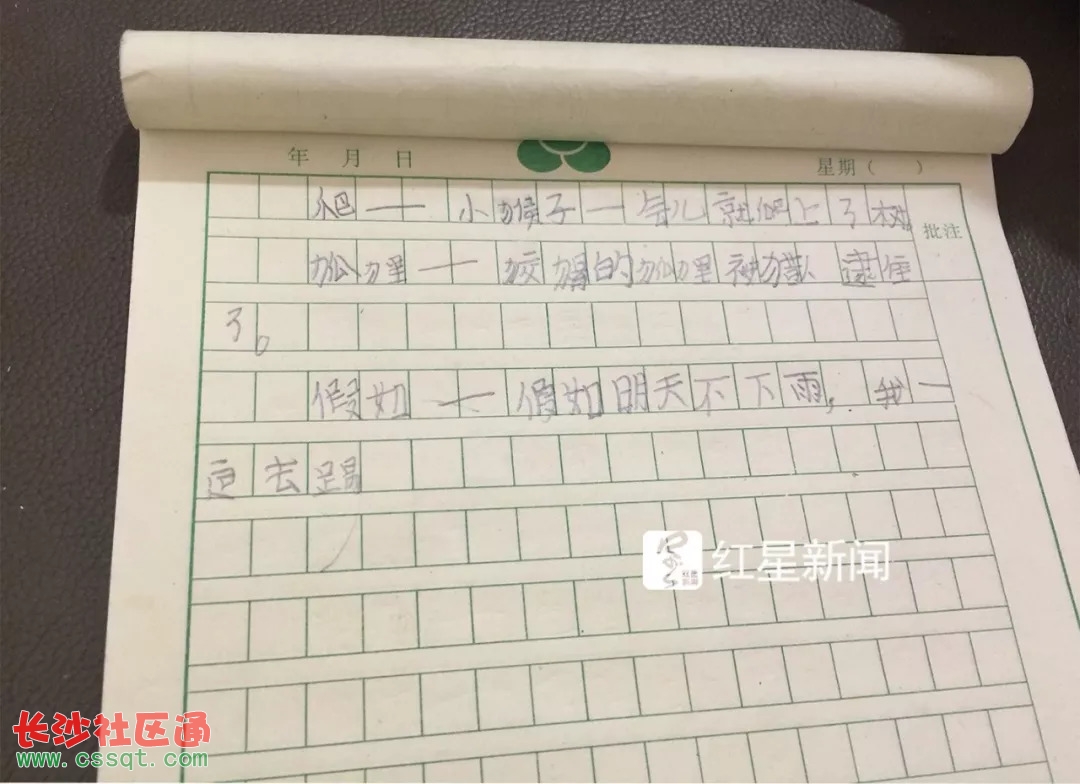 年 月 日 星期( )
爬——小猴子一会儿就爬上了树
批注
狐狸——狡猾的狐狸被猎人逮住
了。
假如——假如明天不下雨,我一
定去踢
红星新闻
长沙社区通
www.cssqt.com